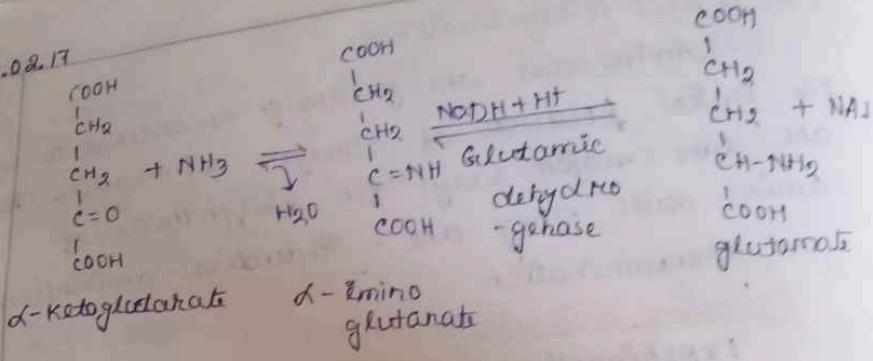 .02.17
COOH
CH2
CH2 + NH3
C=O
COOH
α-Ketoglutarate
H2O
COOH
CH2
CH2
C=NH
COOH
α-imino
glutarate
NADH+H+
Glutamic
dehydro
-genase
COOH
CH2
CH2 + NA
CH-NH2
COOH
glutamate